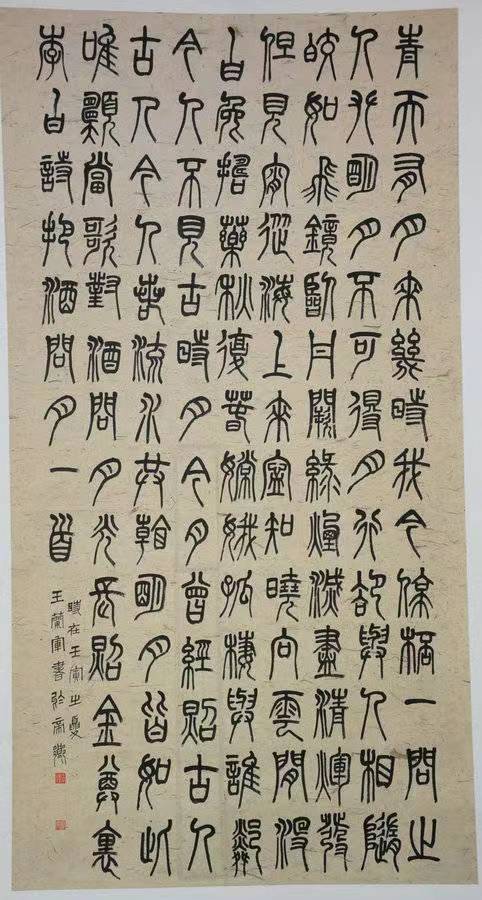 青天有月來幾時我今停杯一問之
人攀明月不可得月行卻與人相隨
皎如飛鏡臨丹闕綠煙滅盡清輝發
但見宵從海上來寧知曉向雲閒沒
白兔擣藥秋復春嫦娥孤棲與誰鄰
今人不見古時月今月曾經照古人
古人今人若流水共看明月皆如此
唯願當歌對酒問月光長照金尊裏
李白詩把酒問月一首
時在壬寅之夏
王軍書於帝